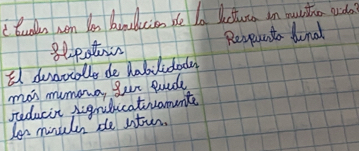 ¿Cuales son los beneficios de la lectura en nuestra vida?
Hipotesis
Respuesta final
El desarrollo de habilidades
más memoria, Leer puede
reducir significativamente
los niveles de estres.